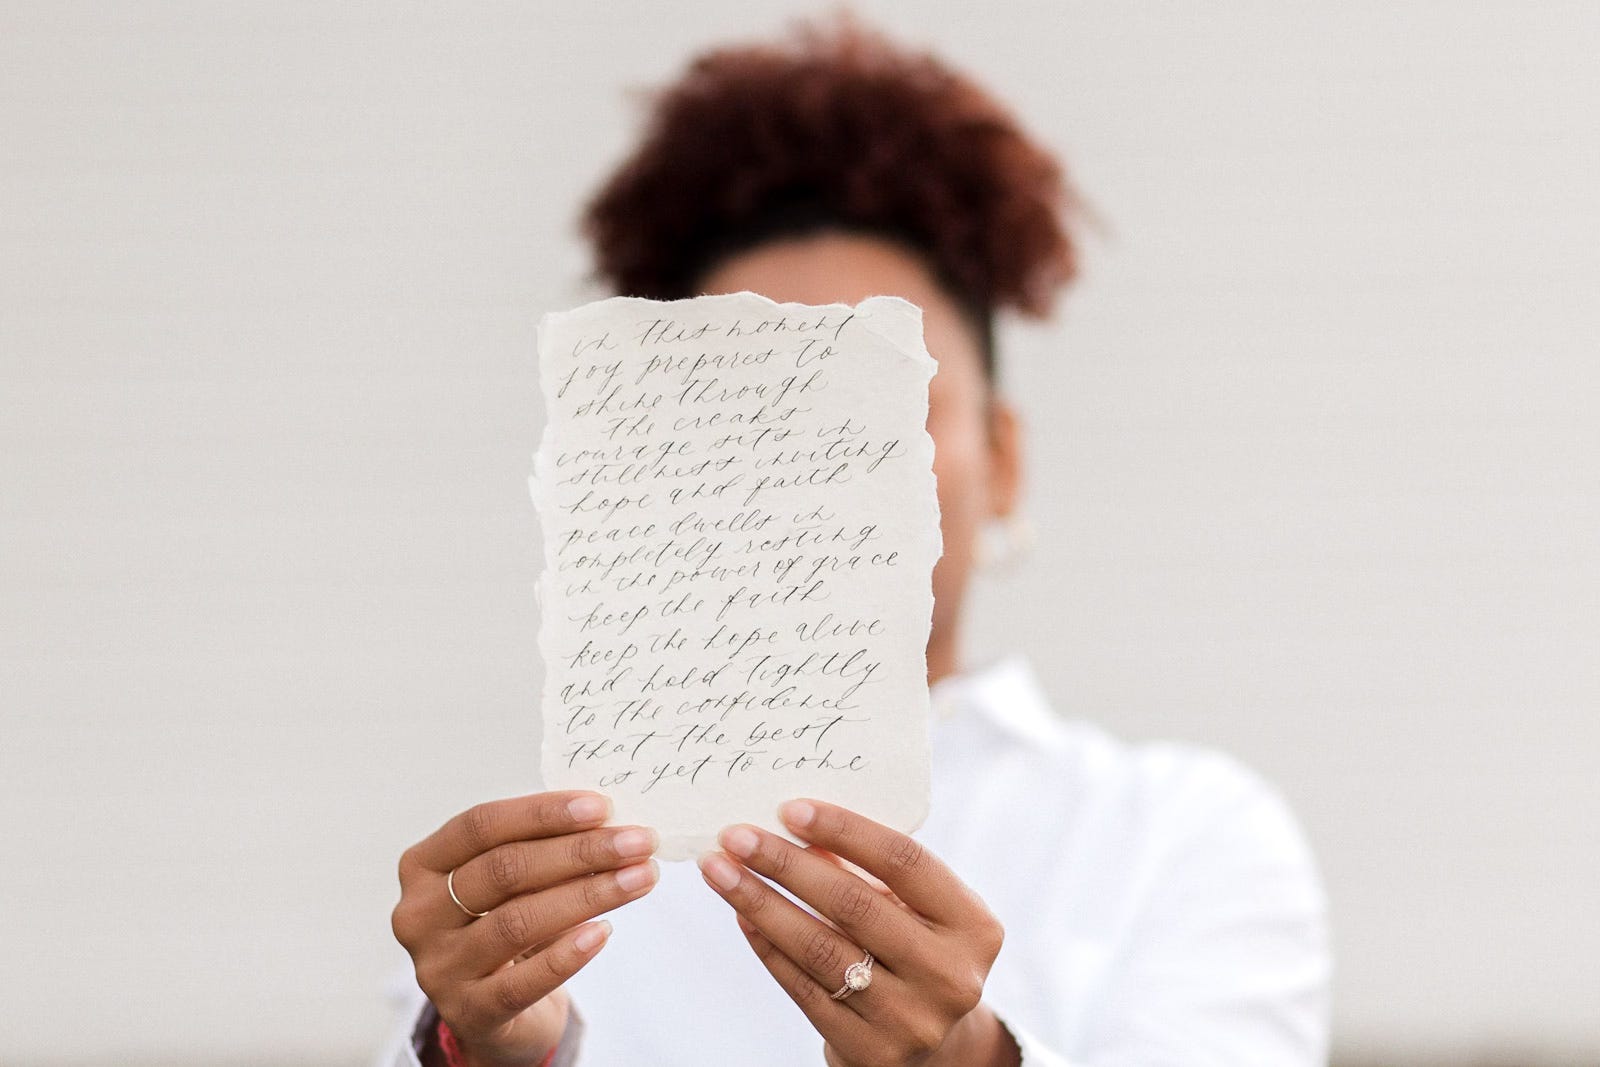 in this moment
joy prepares to
shine through
the creaks
courage sits in
stillness inviting
hope and faith
peace dwells in
completely resting
in the power of grace
keep the faith
keep the hope alive
and hold tightly
to the confidence
that the best
is yet to come